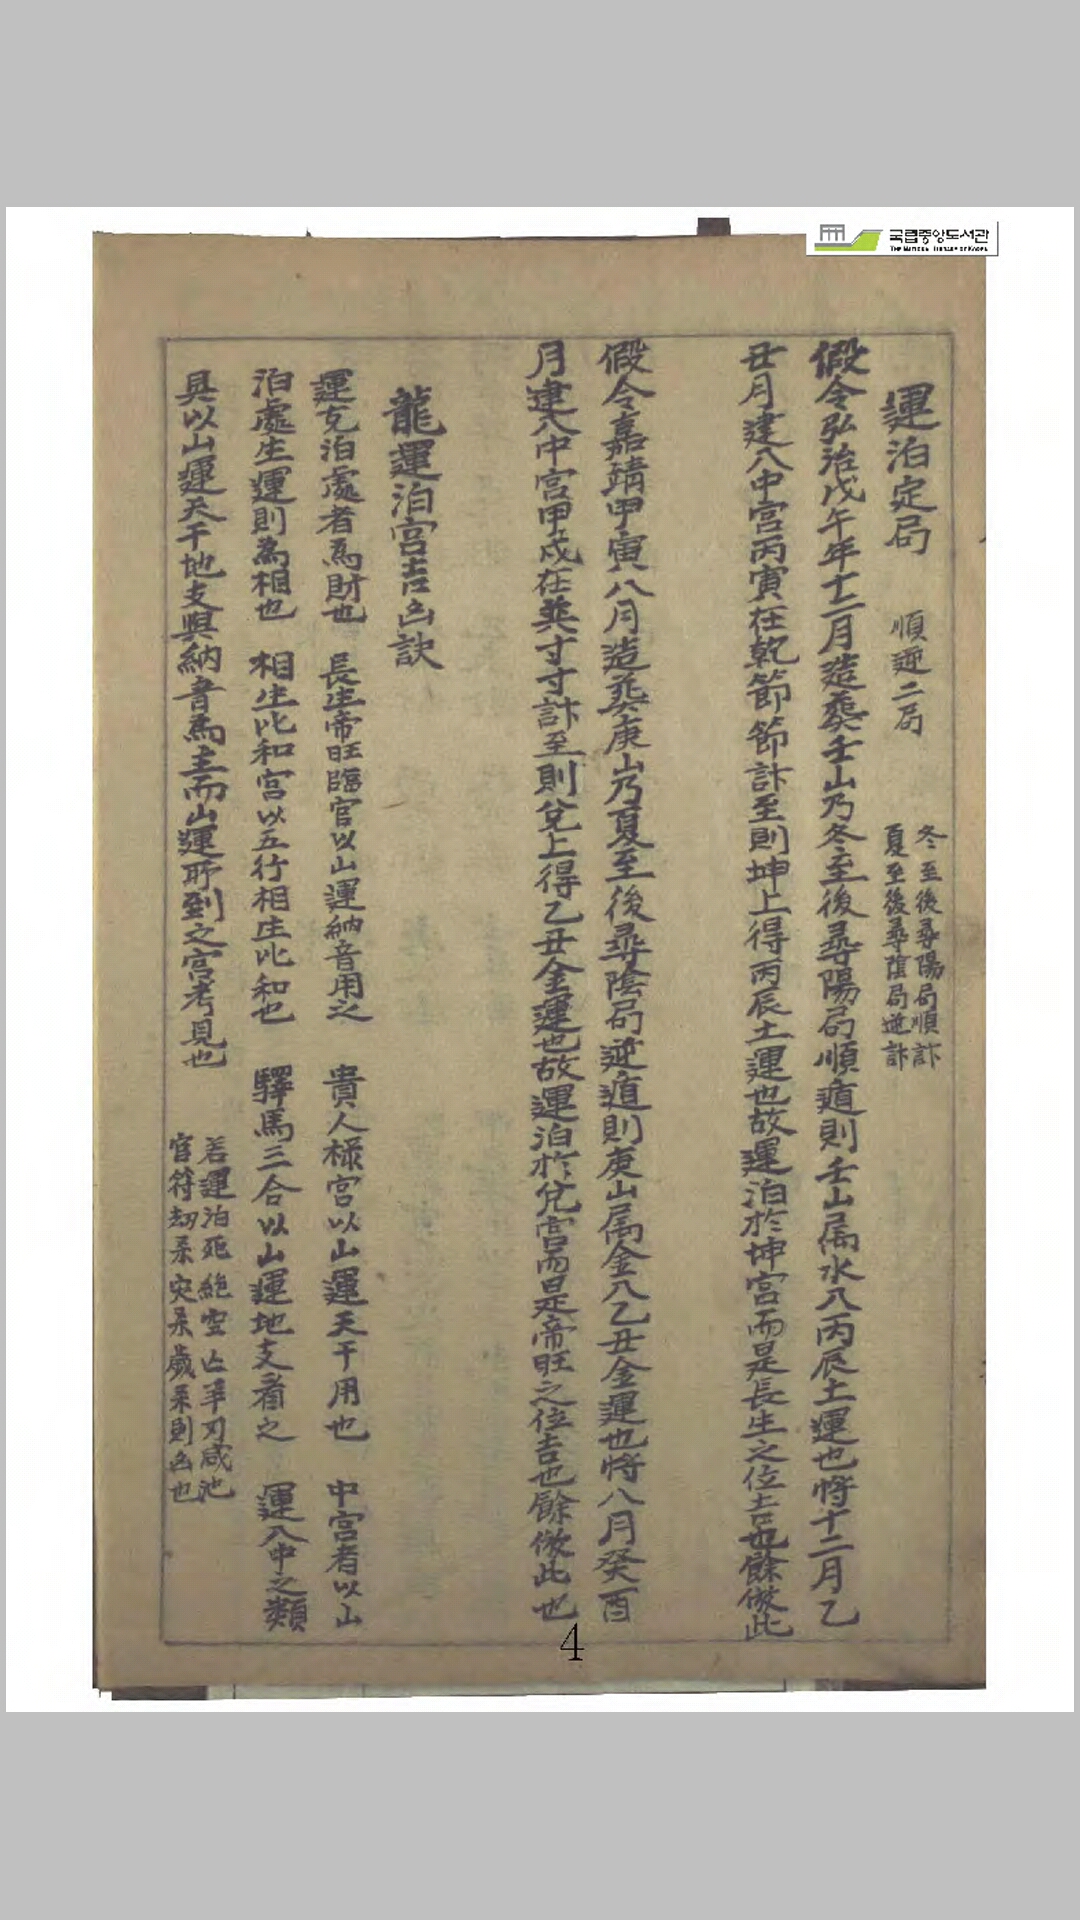 運泊定局 順逆二局 冬至後尋陽局順計
夏至後尋陰局逆計
假令弘治戊午年十二月造葬壬山乃冬至後尋陽局順遁則壬山屬水入丙辰土運也將十二月乙
丑月建入中宮丙寅在乾節節計至則坤上得丙辰土運也故運泊於坤宮而是長生之位吉也餘倣此
假令嘉靖甲寅八月造葬庚山乃夏至後尋陰局逆遁則庚山屬金入乙丑金運也將八月癸酉
月建入中宮甲戌在巽寸寸計至則兌上得乙丑金運也故運泊於兌宮而是帝旺之位吉也餘倣此也
龍運泊宮吉凶訣
運克泊處者爲財也 長生帝旺臨官以山運納音用之 貴人祿宮以山運天干用也 中宮者以山
泊處生運則爲相也 相生比和宮以五行相生比和也 驛馬三合以山運地支看之 運入中之類
具以山運天干地支與納音爲主而山運所到之宮考見也 若運泊死絶空亡羊刃咸池
官符劫杀灾杀歲杀則凶也
국립중앙도서관
THE NATIONAL LIBRARY OF KOREA
4